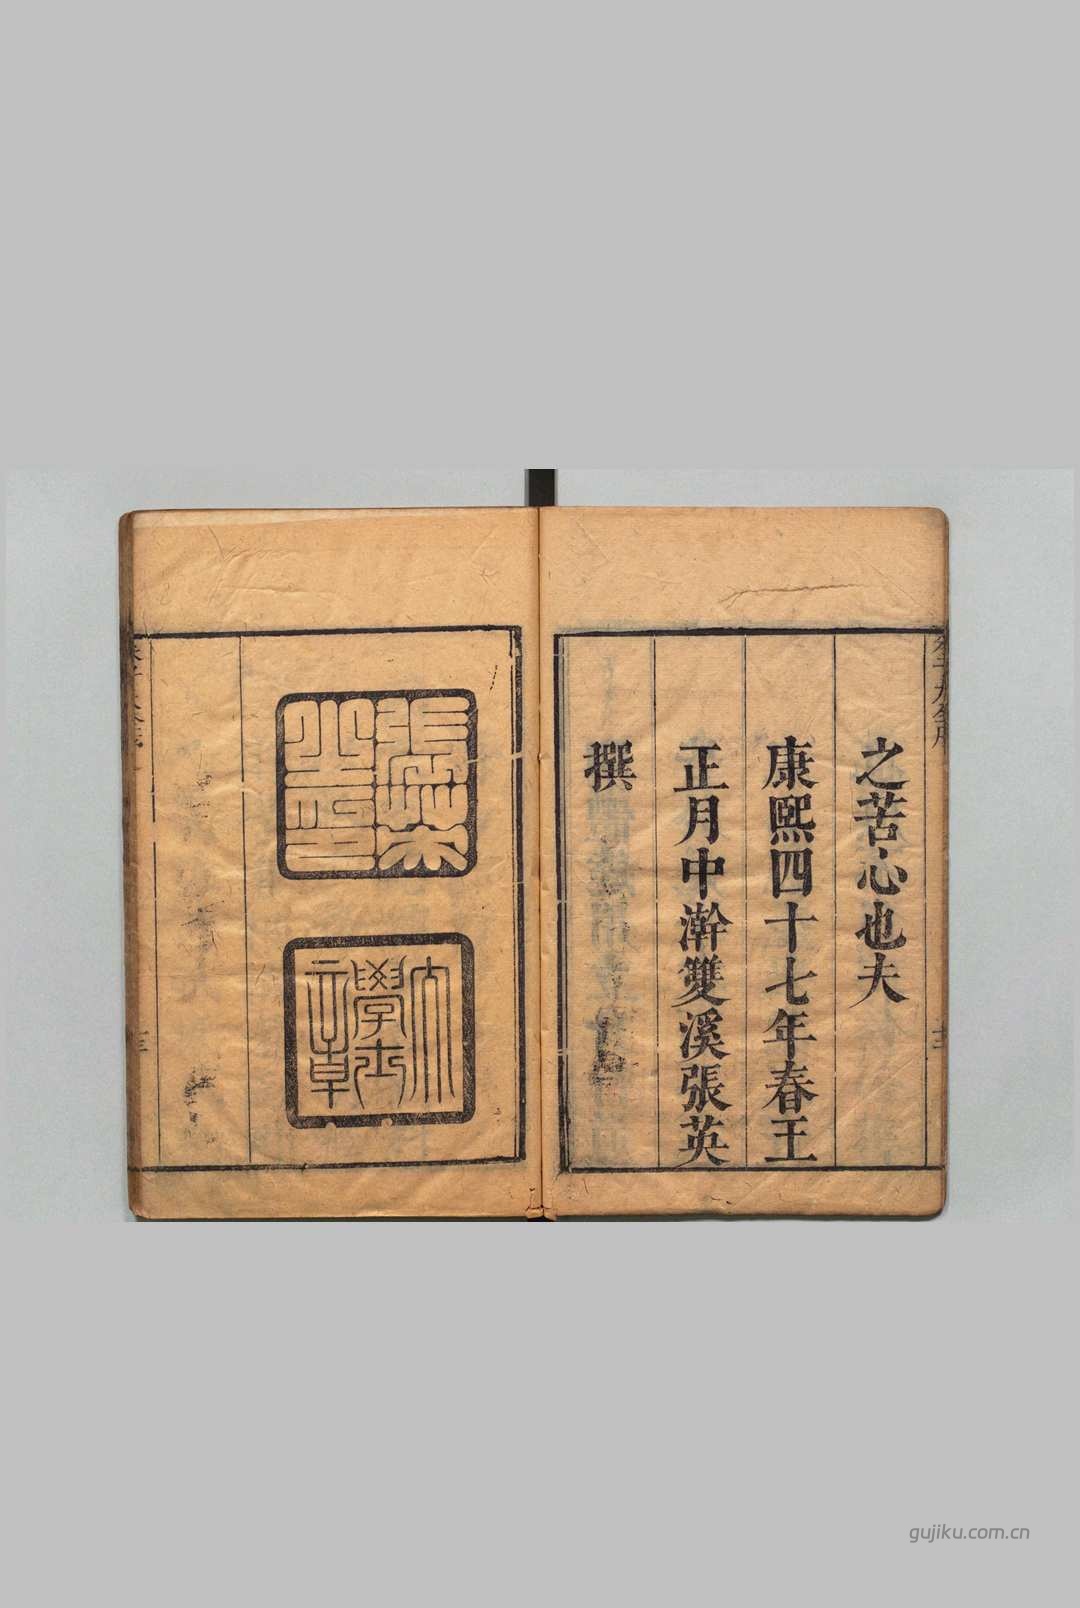 之苦心也夫
康熙四十七年春王
正月中澣雙溪張英
撰
張英之印
大學士章
gujiku.com.cn